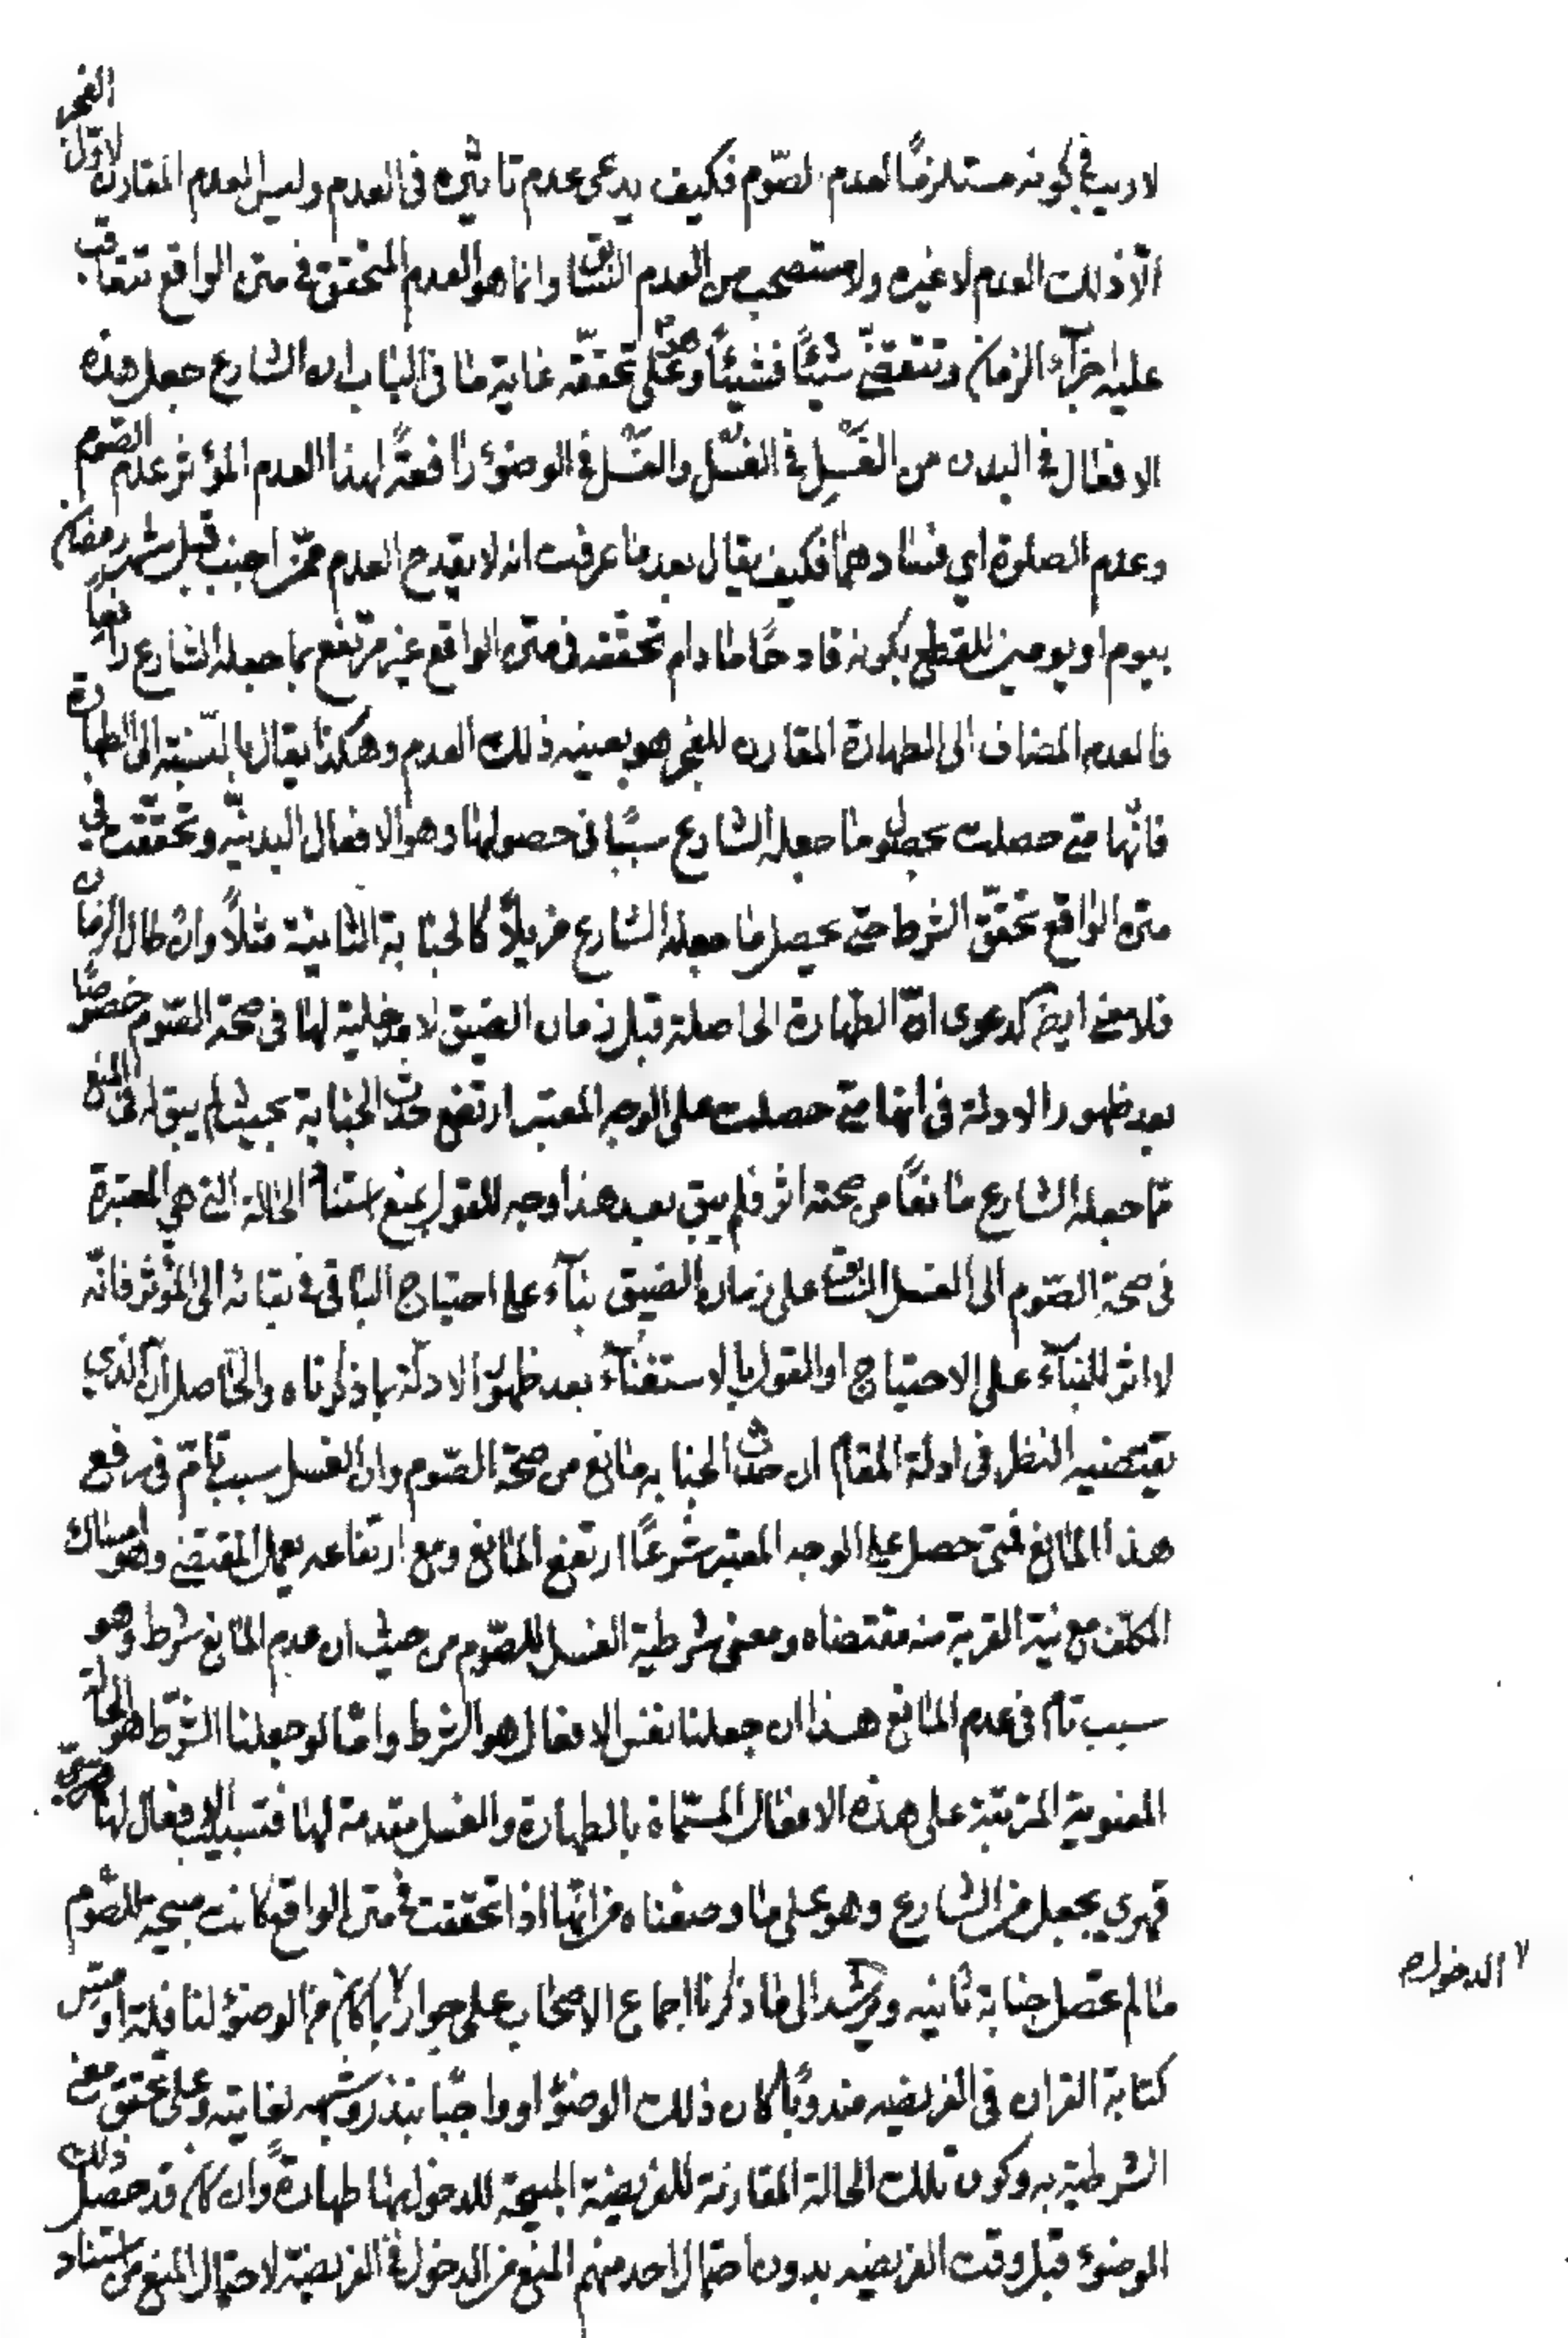 لا ريب في كونه مستلزمًا لعدم الصّوم فكيف يدعى عدم تاثيره فى العدم وليس العدم المقارن لاوّل الفجر
الّا ذلك العدم لا غيره ولا مستصحب من العدم السّابق وانما هو العدم المتحقق في متن الواقع تتعاقب
عليه اجزآء الزمان وتنقضي شيئًا فشيئًا وعلى تحققه غاية ما فى الباب ان الشارع جعل هذه
الافعال في البدن من الغَسل في الغُسل والغَسل في الوضوء رافعة لهذا العدم المؤثر عدم الصّوم
وعدم الصلوة اي فسادهما فكيف يقال بعد ما عرفت انه لا يقدح العدم ممّن اجنب قبل شهر رمضان
بيوم او يومين للقطع بكونه قادحًا ما دام تحققه فى متن الواقع غير مرتفع بما جعله الشارع رافعا
فالعدم المضاف الى الطهارة المقارن للفجر هو بعينه ذلك العدم وهكذا يقال بالنّسبة الى الطهارة
فانّها متى حصلت بحصول ما جعله الشارع سببًا فى حصولها وهو الافعال البدنيّة وتحقّقت في
متن الواقع تحقّق الشرط حتى يحصل ما جعله الشارع مزيلًا كالجنابة الثانية مثلًا وان طال الزمان
فلا معنى ايضا لدعوى انّ الطّهارة الحاصلة قبل زمان الضيق لا مدخلية لها فى صحة الصّوم خصوصًا
بعد ظهور الادلة فى انها متى حصلت على الوجه المعتبر ارتفع حدث الجنابة بحيث لم يبق له فى المنع
مما جعله الشارع مانعًا من صحته اثر فلم يبق بعد هذا وجه للقول بمنع استناد الحالة التي هي المعتبرة
فى صحة الصّوم الى الغسل السّابق على زمان الضيق بنآء على احتياج الباقى فى بقائه الى المؤثر فانّه
لا اثر للبنآء على الاحتياج او القول بالاستغنآء بعد ظهور الادلّة بما ذكرناه والحاصل ان الذي
يقتضيه النظر فى ادلة المقام ان حدث الجنابه مانع من صحة الصّوم وان الغسل سبب تامّ فى رفع
هذا المانع فمتى حصل على الوجه المعتبر شرعًا ارتفع المانع ومع ارتفاعه يعمل المقتضي وهو امساك
المكلف مع نية القربة منه مقتضاه ومعنى شرطية الغسل للصّوم من حيث ان عدم المانع شرط وهو
سبب تام فى عدم المانع هذا ان جعلنا نفس الافعال هو الشرط وامّا لو جعلنا الشّرط هو الحالة
المعنوية المترتبة على هذه الافعال المسّماة بالطهارة والغسل مقدمة لها فتسبيب الافعال لها
قهري بجعل من الشارع وهو على ما وصفناه من انّها اذا تحققت في متن الواقع كانت مبيحة للصّوم
ما لم تحصل جنابة ثانيه ويرشد الى ما ذكرنا اجماع الاصحاب على جواز ما كان من الوضوء لنافلة او مسّ
كتابة القران فى الفريضه مندوبًا كان ذلك الوضوء او واجبًا بنذر وشبهه لغايته وعلى تحقق معنى
الشرطية به وكون تلك الحالة المقارنة للفريضة المبيحة للدخول بها طهارة وان كان قد حصل ذلك
الوضوء قبل وقت الفريضه بدون احتمال احد منهم المنع من الدخول في الفريضة لاحتمال المنع من استناد
الدخول